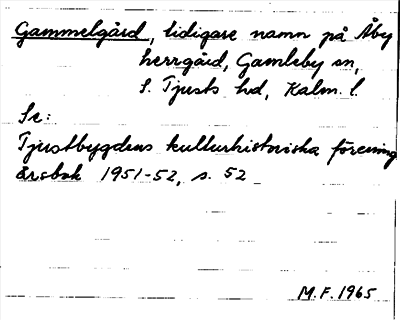 Gammelgård, tidigare namn på Åby
herrgård, Gamleby sn,
S. Tjusts hd, Kalm. l.
Se:
Tjustbygdens kulturhistoriska förening
årsbok 1951-52, s. 52
M.F. 1965